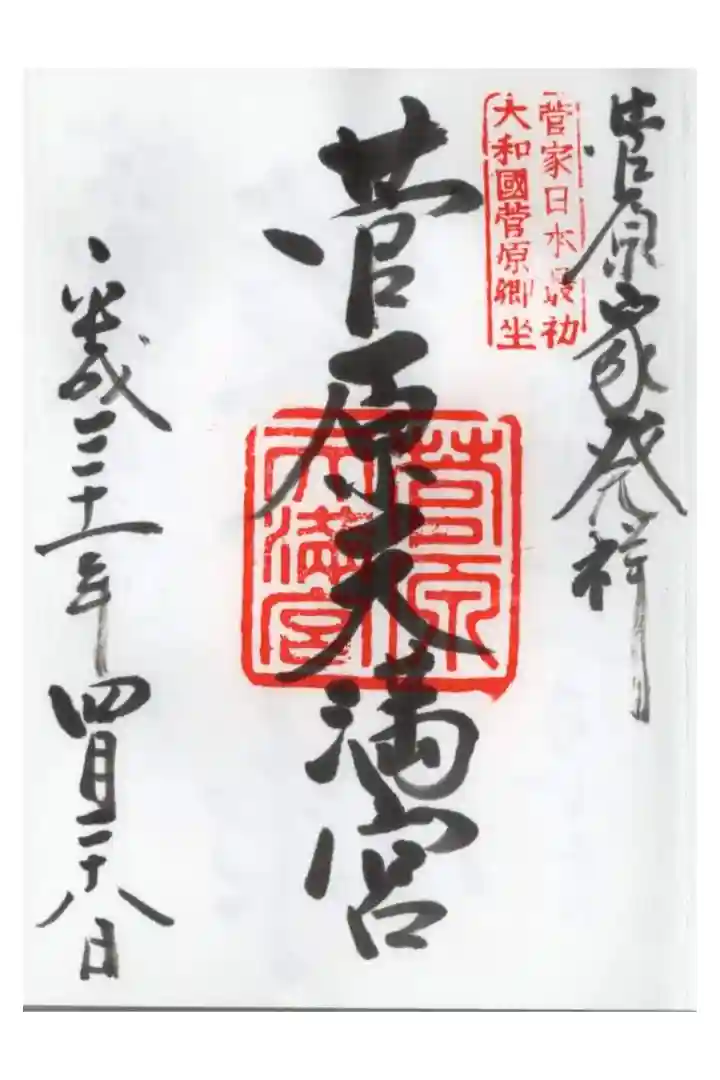 菅原家発祥
菅家日本最初
大和國菅原郷坐
菅原天満宮
菅原
天満宮
平成三十一年四月二十八日